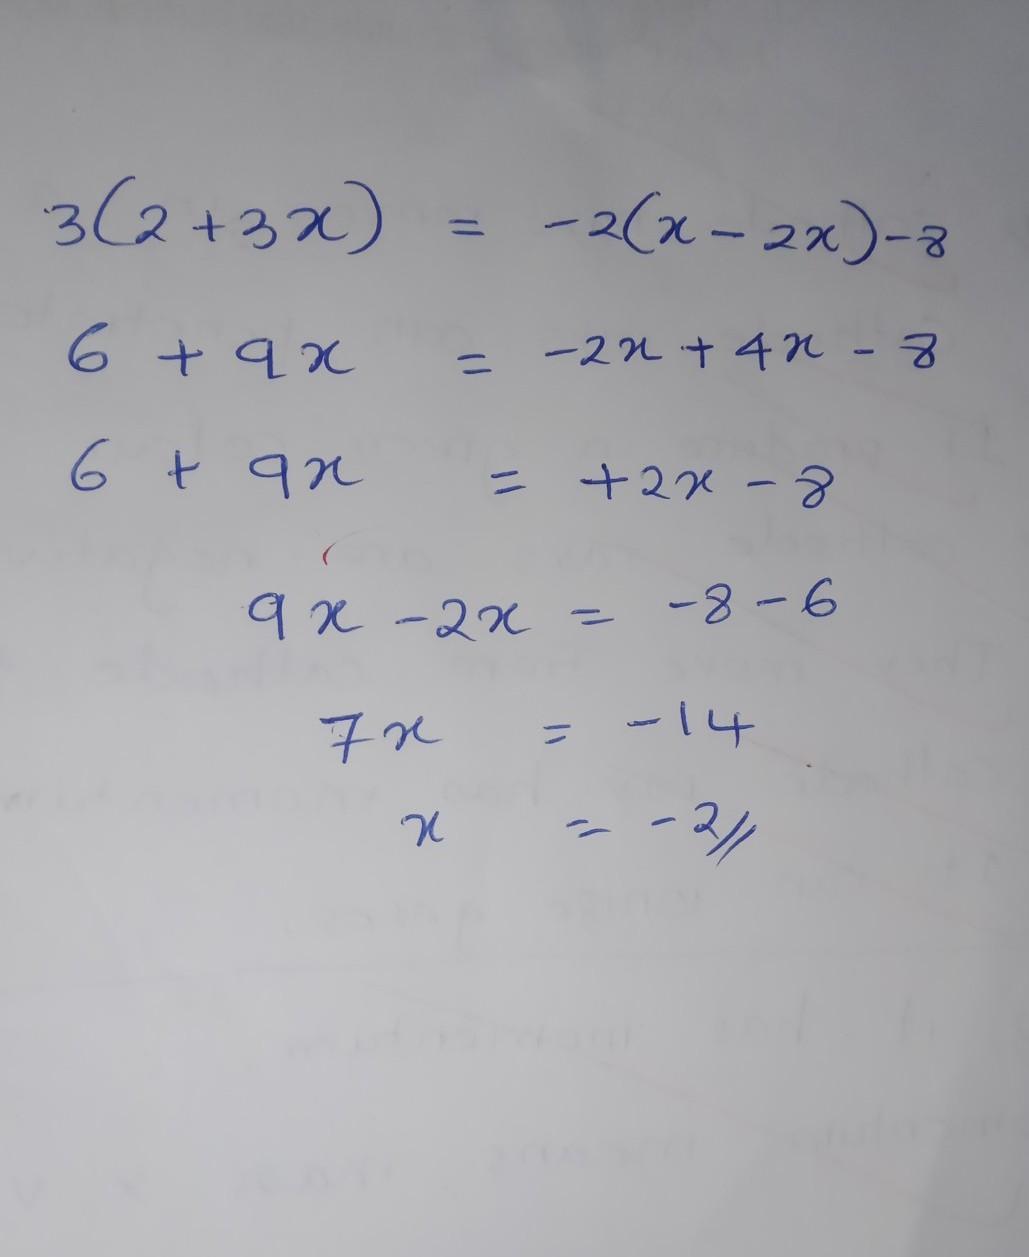 3(2+3x) = -2(x-2x)-8
6 + 9x = -2x + 4x - 8
6 + 9x = +2x - 8
9x - 2x = -8 - 6
7x = -14
x = -2//